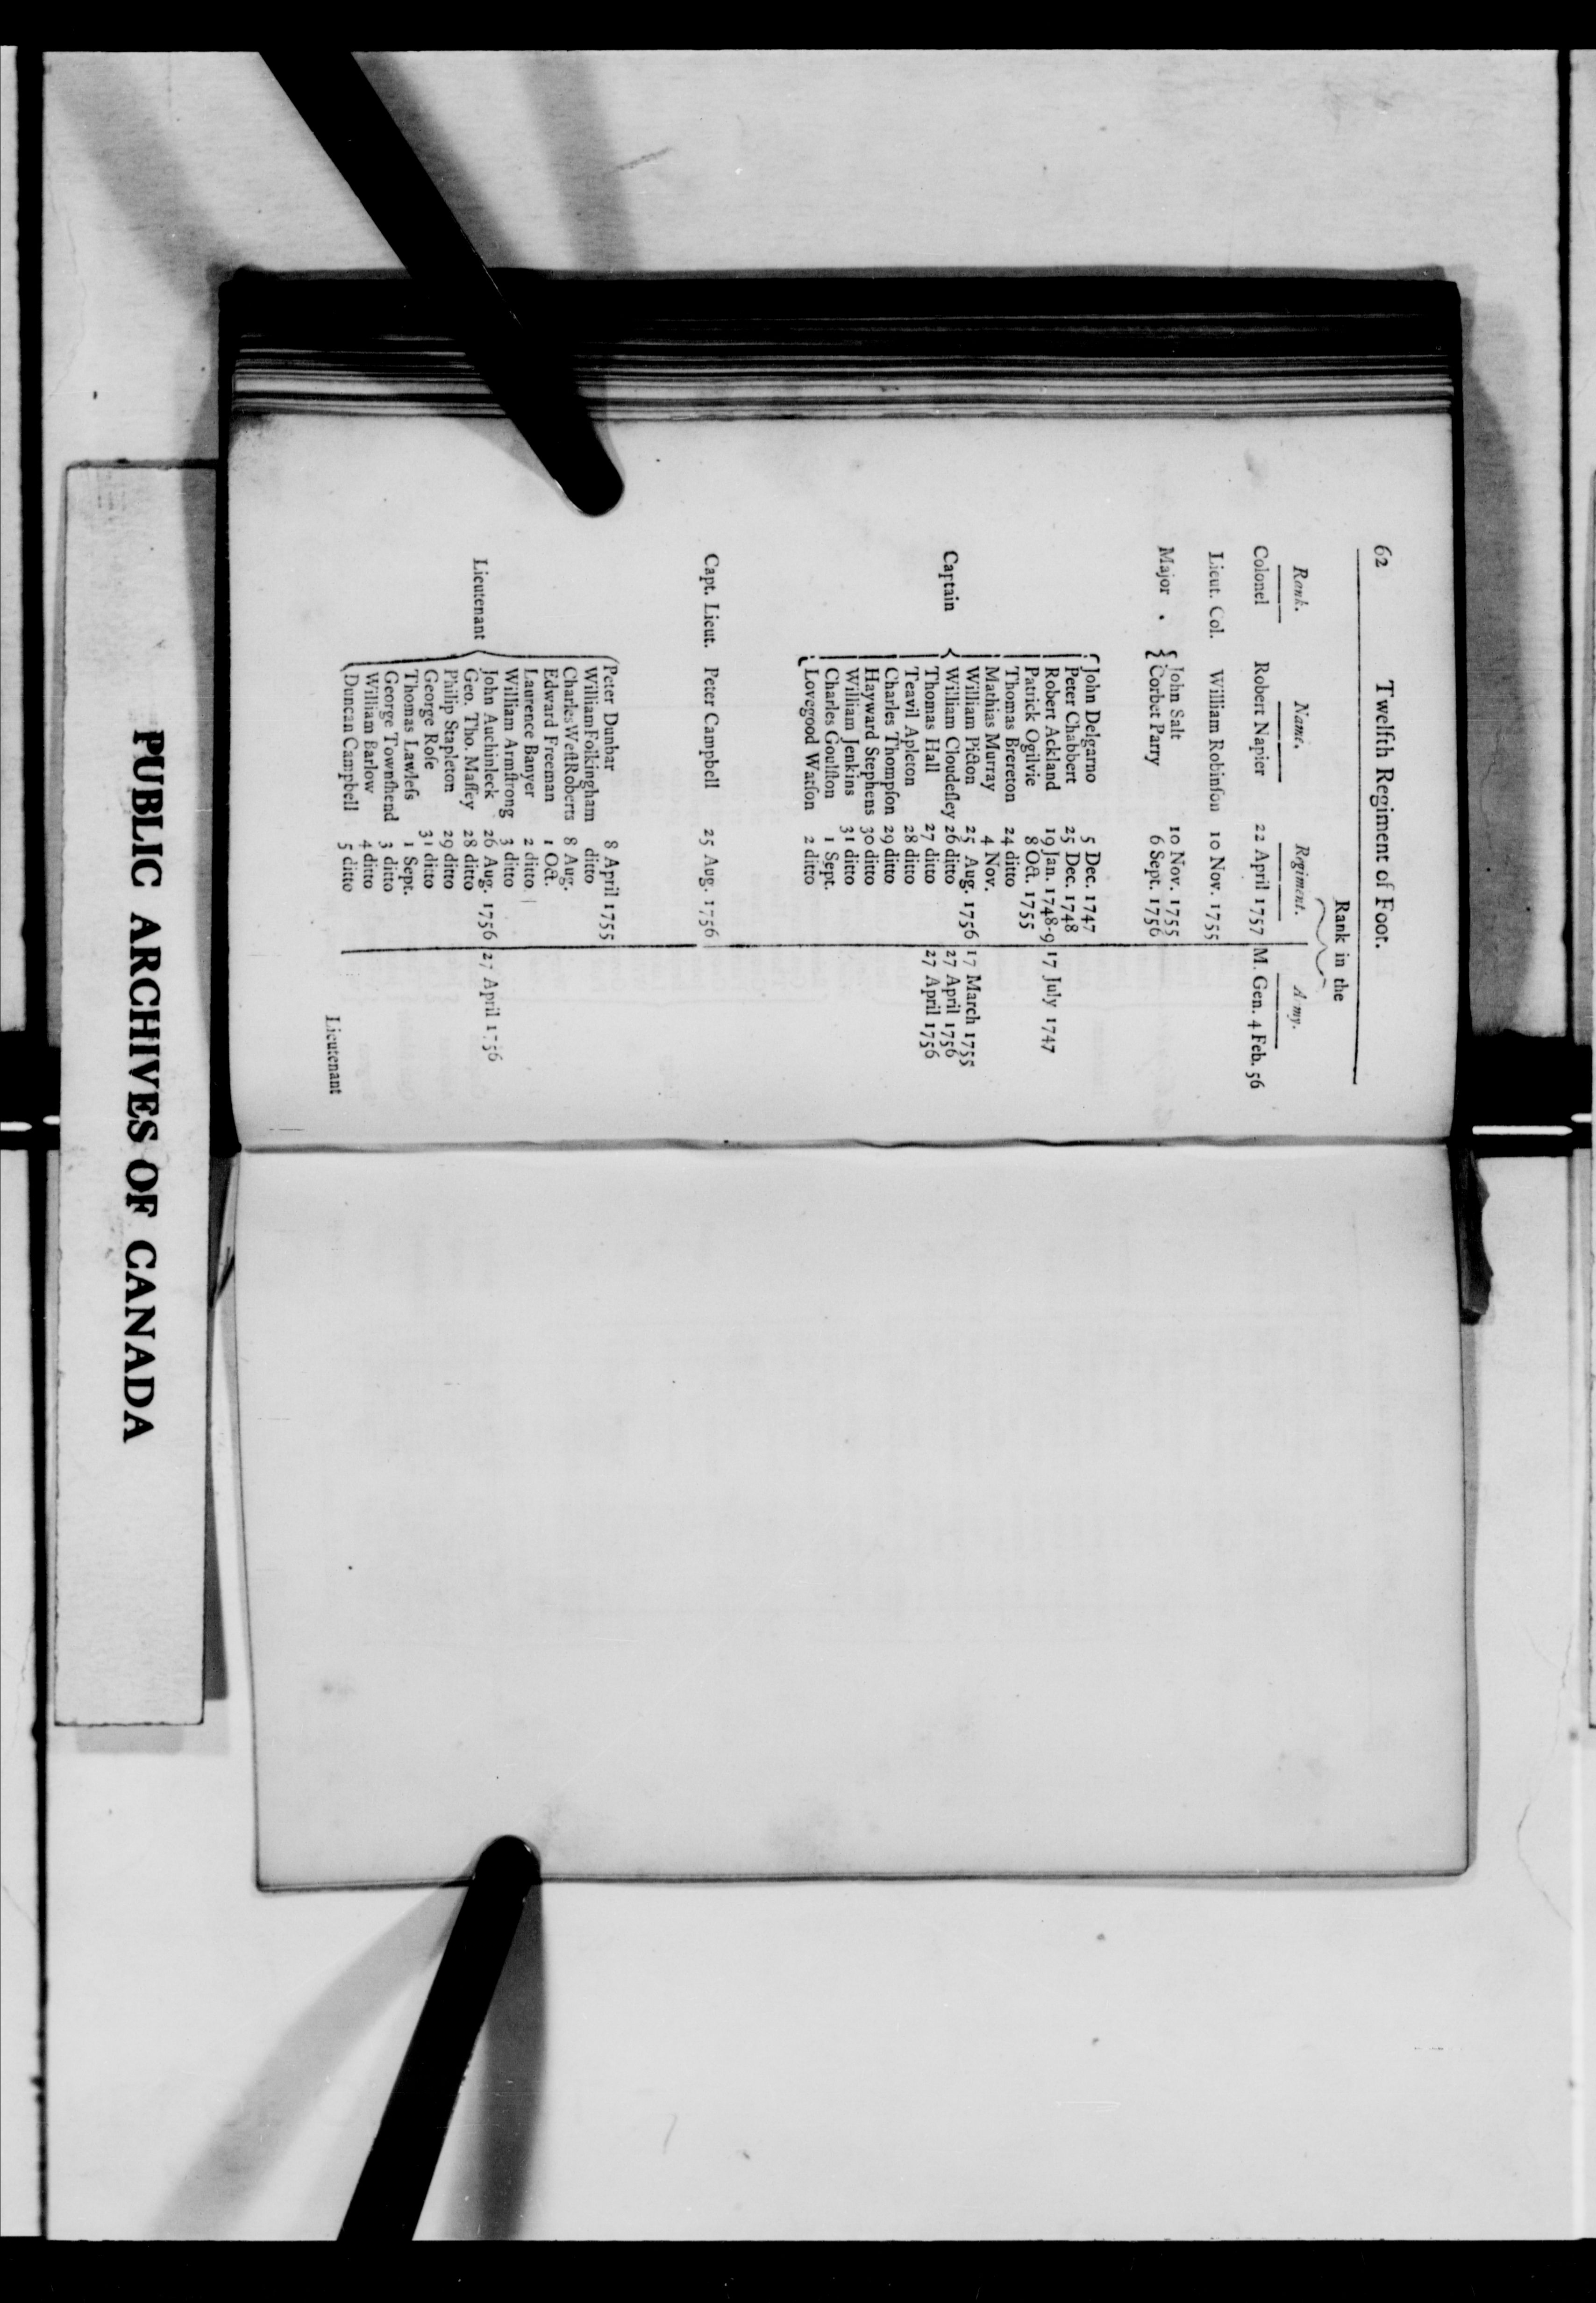 62 Twelfth Regiment of Foot.
Rank in the
Rank. Name. Regiment. Army.
Colonel Robert Napier 22 April 1757 M. Gen. 4 Feb. 56
Lieut. Col. William Robinſon 10 Nov. 1755
Major . { John Salt 10 Nov. 1755
Corbet Parry 6 Sept. 1756
John Delgarno 5 Dec. 1747
Peter Chabbert 25 Dec. 1748
Robert Ackland 19 Jan. 1748-9 17 July 1747
Patrick Ogilvie 8 Oct. 1755
Thomas Brereton 24 ditto
Mathias Murray 4 Nov.
William Picton 25 Aug. 1756 17 March 1755
Captain William Cloudeſley 26 ditto 27 April 1756
Thomas Hall 27 ditto 27 April 1756
Teavil Apleton 28 ditto
Charles Thompſon 29 ditto
Hayward Stephens 30 ditto
William Jenkins 31 ditto
Charles Goulſton 1 Sept.
Lovegood Watſon 2 ditto
Capt. Lieut. Peter Campbell 25 Aug. 1756
Peter Dunbar 8 April 1755
William Folkingham ditto
Charles Weſt Roberts 8 Aug.
Edward Freeman 1 Oct.
Laurence Banyer 2 ditto
William Armſtrong 3 ditto
Lieutenant John Auchinleck 26 Aug. 1756 27 April 1756
Geo. Tho. Maſſey 28 ditto
Philip Stapleton 29 ditto
George Roſe 31 ditto
Thomas Lawleſs 1 Sept.
George Townſhend 3 ditto
William Barlow 4 ditto
Duncan Campbell 5 ditto
Lieutenant
PUBLIC ARCHIVES OF CANADA